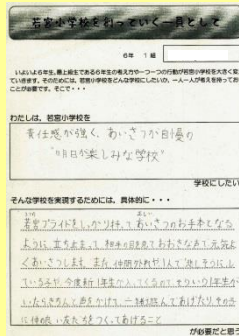 若宮小学校を創っていく一員として
6年 1組
いよいよ6年生。最上級生である6年生の考え方や一つ一つの行動が若宮小学校を大きく変
ていきます。そのためには、若宮小学校をどんな学校にしたいか、一人一人が考えを持ってお
ことが必要です。そこで・・・
わたしは、若宮小学校を
責任感が強く、あいさつが自慢の
"明日が楽しみな学校"
学校にしたい
そんな学校を実現するためには、具体的に・・・
若宮プライドをしっかり持って、あいさつのお手本となる
ように、立ち止まって、相手の目を見ておおきな声で元気よ
くあいさつします。また、仲間外れや1人で
ている子や、今度新1年生が入ってくるので、そういう1年生が
いたらきちんと声をかけて、一緒に遊んであげたり、その子
に仲の良い友だちをつくってあげること
が必要だと思う